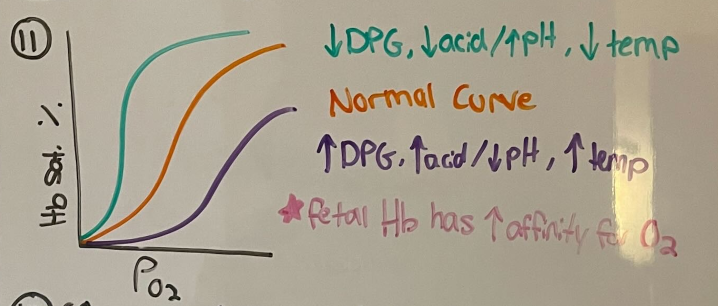 ⑪
↓DPG, ↓acid/↑pH, ↓ temp
Normal Curve
↑DPG, ↑acid/↓pH, ↑ temp
★fetal Hb has ↑affinity for O₂
Hb Sat. %
PO₂